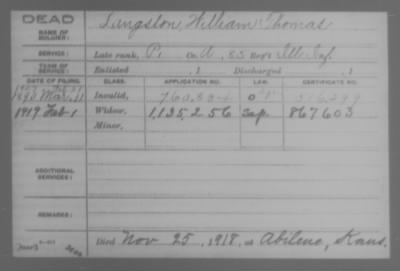 DEAD
NAME OF SOLDIER: Langston, William Thomas
SERVICE: Late rank, Pt Co. A, 83 Reg't Ill Inf.
TERM OF SERVICE: Enlisted , 1 Discharged , 1
DATE OF FILING. CLASS. APPLICATION NO. LAW. CERTIFICATE NO.
Mar. 11 Invalid,
1919 Feb 1 Widow, 1,135,256 867603
Minor,
ADDITIONAL SERVICES:
REMARKS:
Died Nov 25, 1918, at Abilene, Kans.